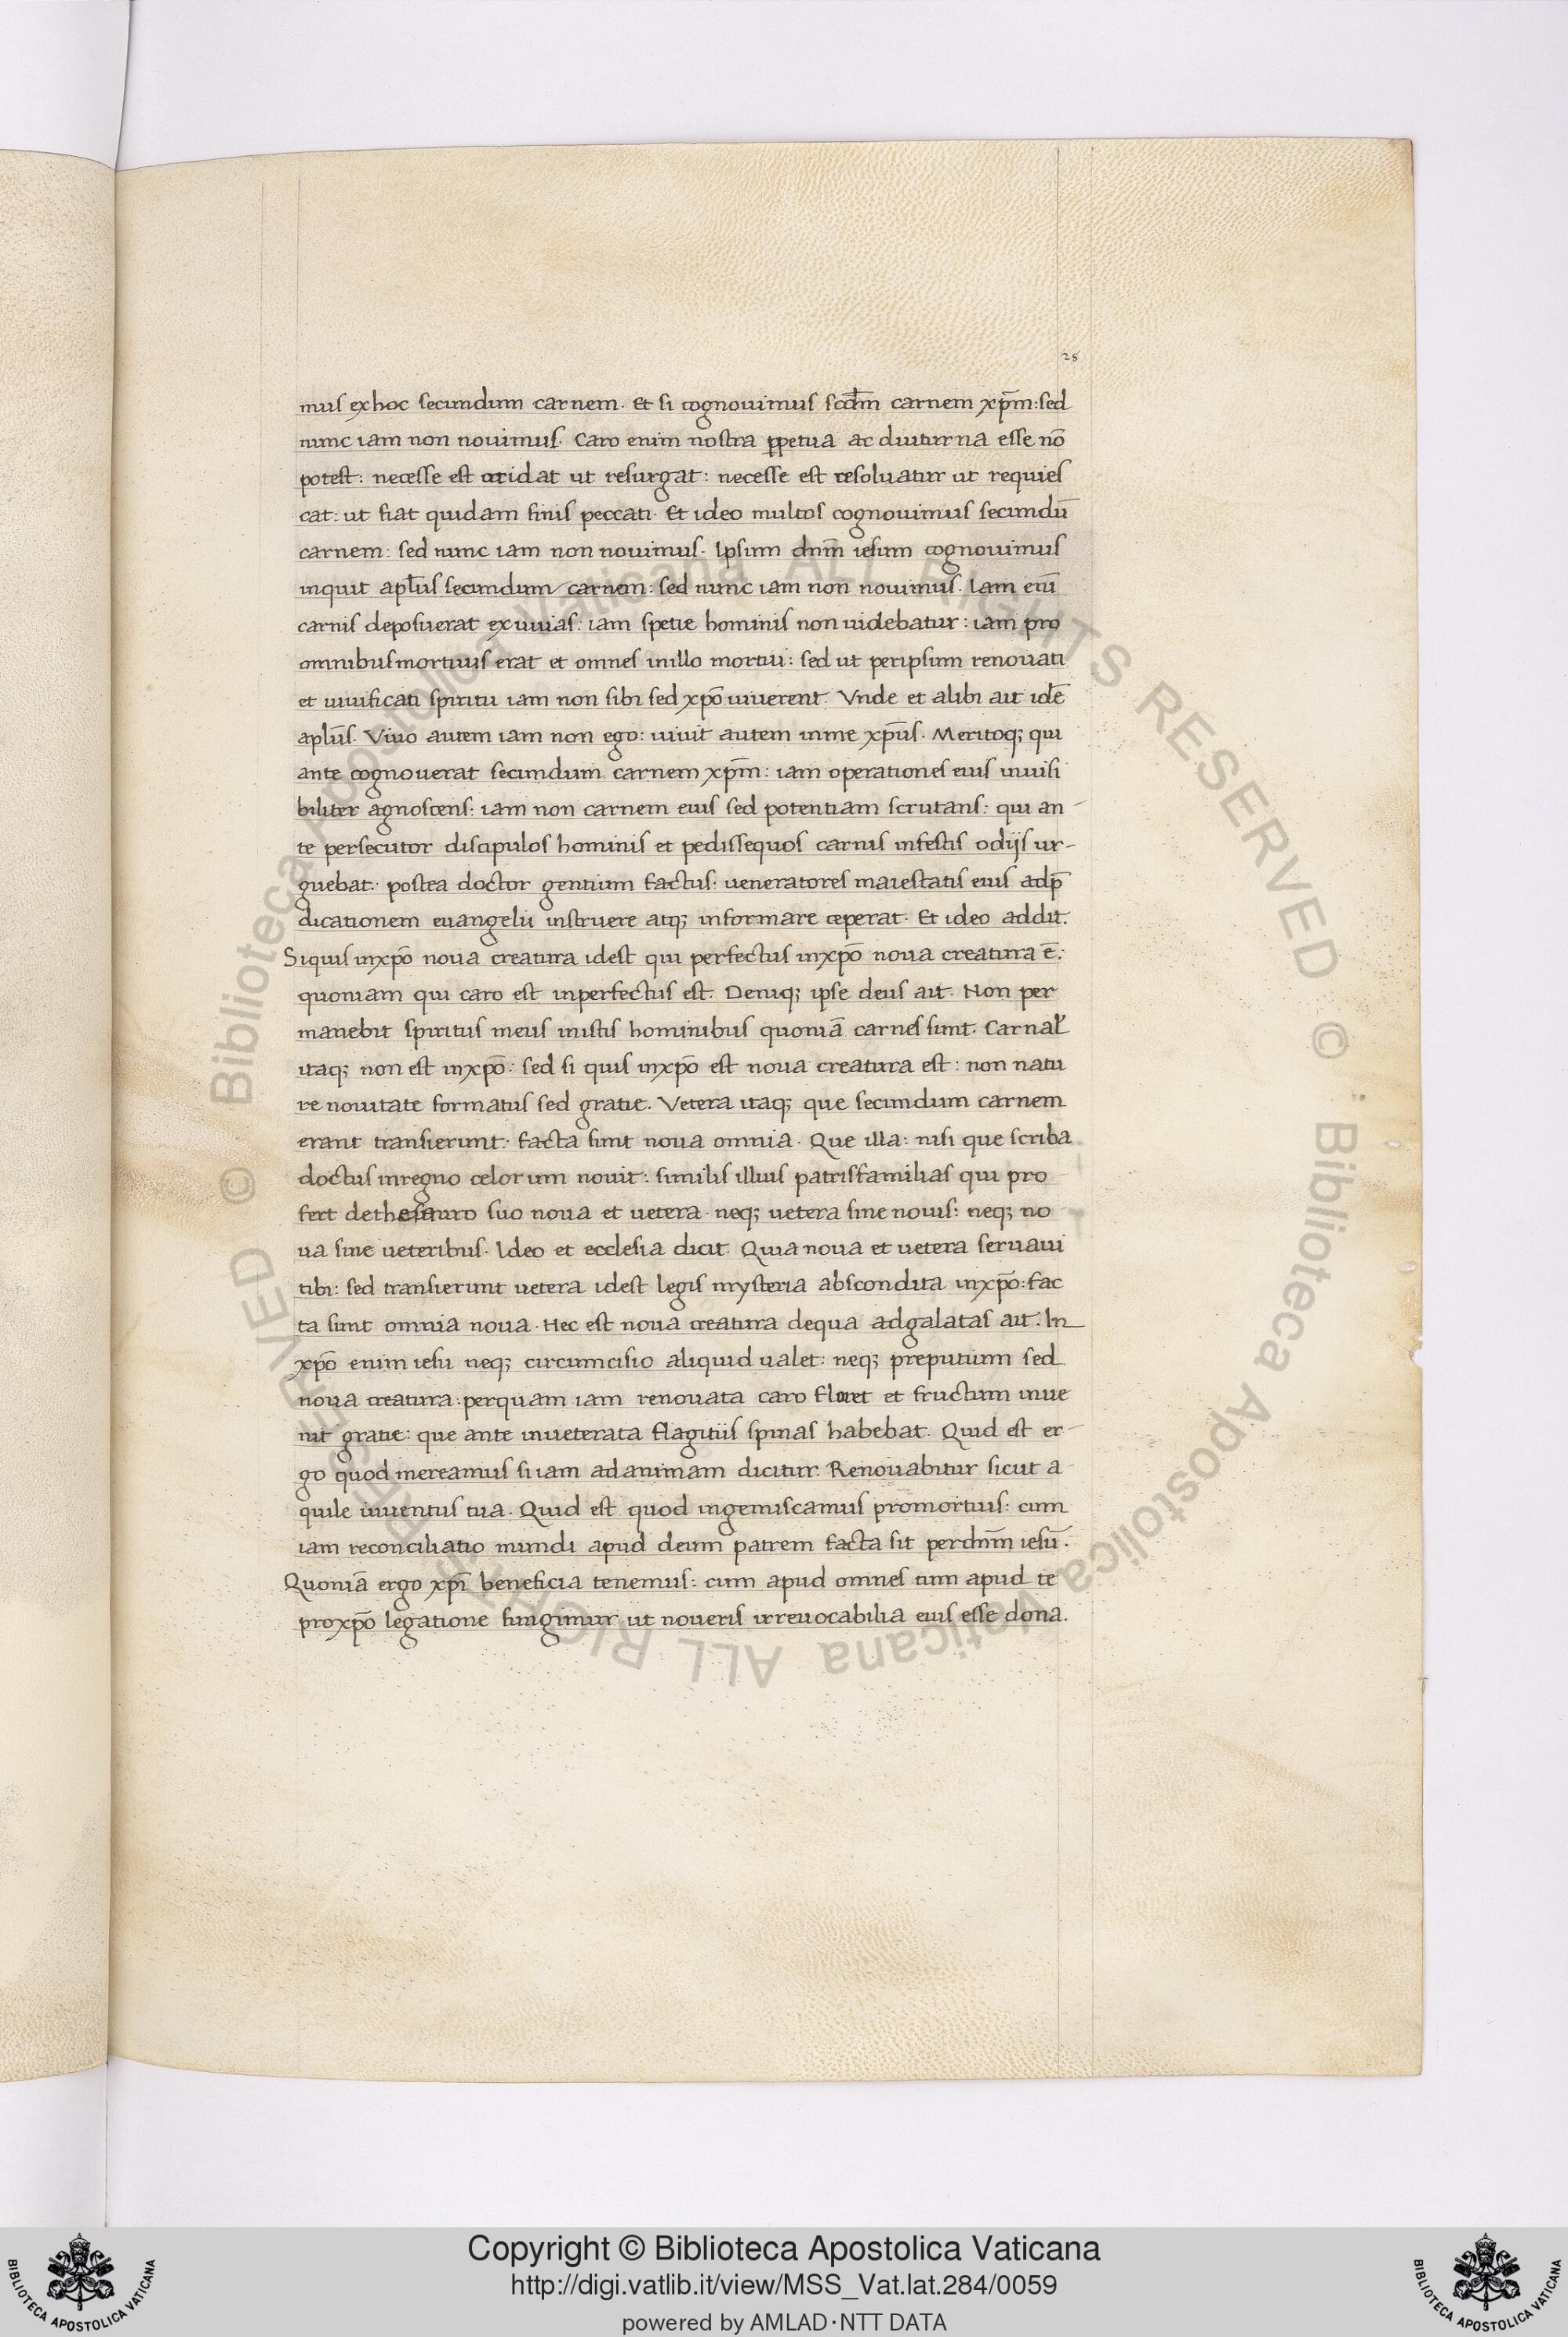 28
mus exhoc secundum carnem. Et si cognouimus scd̄m carnem xp̄m: sed
nunc iam non nouimus. Caro enim nostra ꝑpetua ac diuturna esse nō
potest: necesse est occidat ut resurgat: necesse est resoluatur ut requies
cat: ut fiat quidam finis peccati. Et ideo multos cognouimus secundū
carnem: sed nunc iam non nouimus. Ipsum dnm̄ iesum cognouimus
inquit apl̄us secundum carnem: sed nunc iam non nouimus. Iam eni̅
carnis deposuerat exuuias: iam spetie hominis non uidebatur: iam pro
omnibus mortuus erat et omnes inillo mortui: sed ut peripsum renouati
et uiuificati spiritu iam non sibi sed xpō uiuerent. Vnde et alibi ait idē
aplūs. Viuo autem iam non ego: uiuit autem inme xpūs. Meritoq; qui
ante cognouerat secundum carnem xpm̄: iam operationes eius inuisi
biliter agnoscens: iam non carnem eius sed potentiam scrutans: qui an-
te persecutor discipulos hominis et pedissequos carnis infestis odijs ur-
guebat: postea doctor gentium factus: ueneratores maiestatis eius adp̄
dicationem euangelii instruere atq; informare ceperat. Et ideo addit.
Siquis inxpō noua creatura idest qui perfectus inxpō noua creatura ē:
quoniam qui caro est inperfectus est. Deniq; ipse deus ait. Non per
manebit spiritus meus inistis hominibus quoniā carnes sunt. Carnal̛
itaq; non est inxpō: sed si quis inxpō est noua creatura est: non natu
re nouitate formatus sed gratie. Vetera itaq; que secundum carnem
erant transierunt: facta sunt noua omnia. Que illa: nisi que scriba
doctus inregno celorum nouit: similis illius patrisfamilias qui pro
fert dethesauro suo noua et uetera. neq; uetera sine nouis: neq; no
ua sine ueteribus. Ideo et ecclesia dicit. Quia noua et uetera seruaui
tibi: sed transierunt uetera idest legis mysteria abscondita inxpō: fac
ta sunt omnia noua. Hec est noua creatura dequa adgalatas ait. In
xpō enim iesu neq; circumcisio aliquid ualet: neq; preputium sed
noua creatura: perquam iam renouata caro floret et fructum inue
nit gratie: que ante inueterata flagitiis spinas habebat. Quid est er-
go quod mereamus si iam adanimam dicitur. Renouabitur sicut a
quile iuuentus tua. Quid est quod ingemiscamus promortuis: cum
iam reconciliatio mundi apud deum patrem facta sit perdnm̄ iesū.
Quoniā ergo xpī beneficia tenemus: cum apud omnes tum apud te
proxpō legatione fungimur ut noueris irreuocabilia eius esse dona.
© Biblioteca Apostolica Vaticana ALL RIGHTS RESERVED © Biblioteca Apostolica Vaticana ALL RIGHTS RESERVED
Copyright © Biblioteca Apostolica Vaticana
http://digi.vatlib.it/view/MSS_Vat.lat.284/0059
powered by AMLAD·NTT DATA
BIBLIOTECA APOSTOLICA VATICANA
BIBLIOTECA APOSTOLICA VATICANA